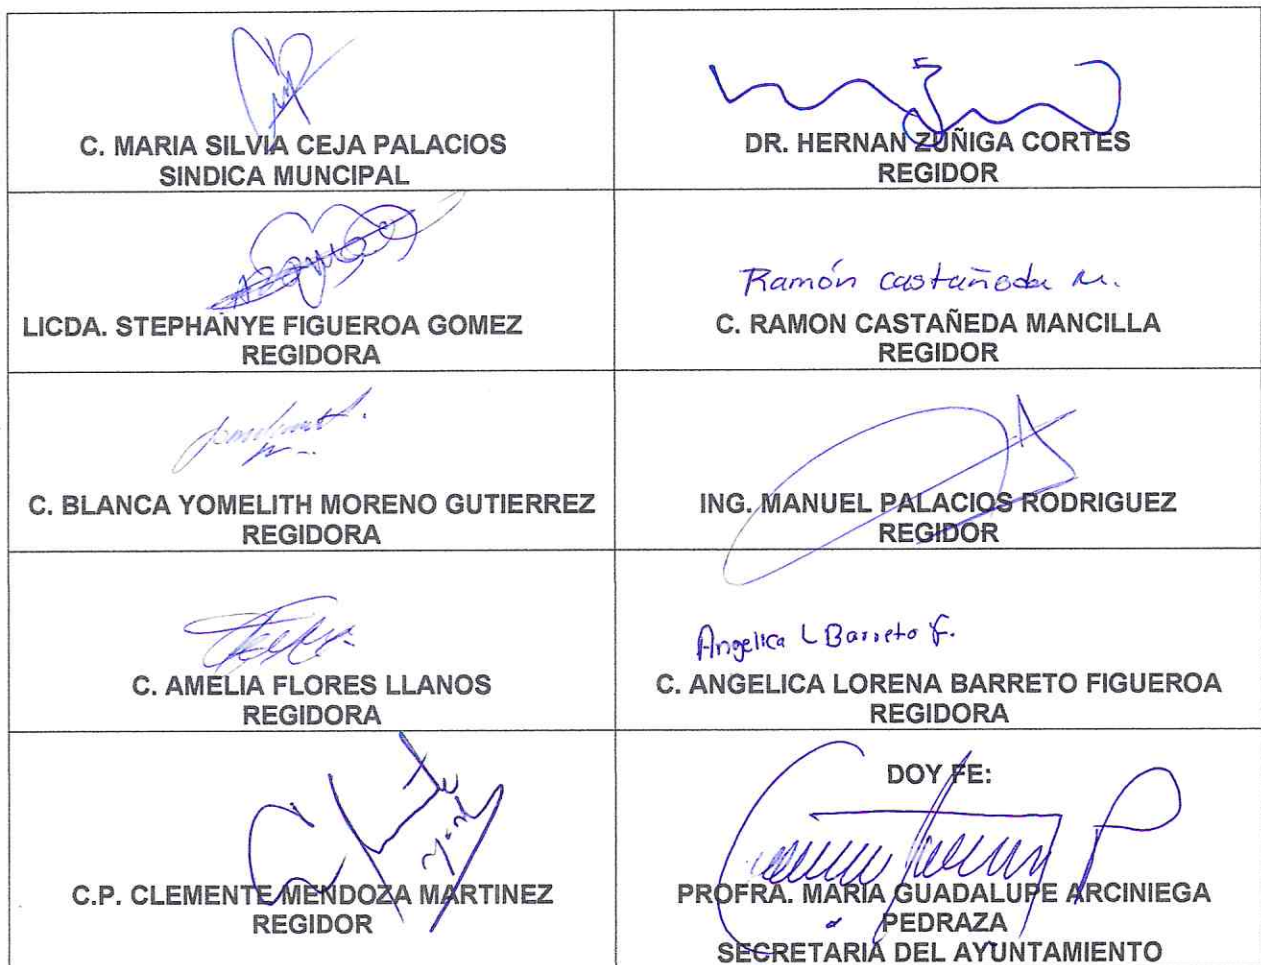 C. MARIA SILVIA CEJA PALACIOS
SINDICA MUNCIPAL
DR. HERNAN ZUÑIGA CORTES
REGIDOR
LICDA. STEPHANYE FIGUEROA GOMEZ
REGIDORA
Ramón Castañeda M.
C. RAMON CASTAÑEDA MANCILLA
REGIDOR
C. BLANCA YOMELITH MORENO GUTIERREZ
REGIDORA
ING. MANUEL PALACIOS RODRIGUEZ
REGIDOR
C. AMELIA FLORES LLANOS
REGIDORA
Angelica L Barreto F.
C. ANGELICA LORENA BARRETO FIGUEROA
REGIDORA
C.P. CLEMENTE MENDOZA MARTINEZ
REGIDOR
DOY FE:
PROFRA. MARIA GUADALUPE ARCINIEGA
PEDRAZA
SECRETARIA DEL AYUNTAMIENTO